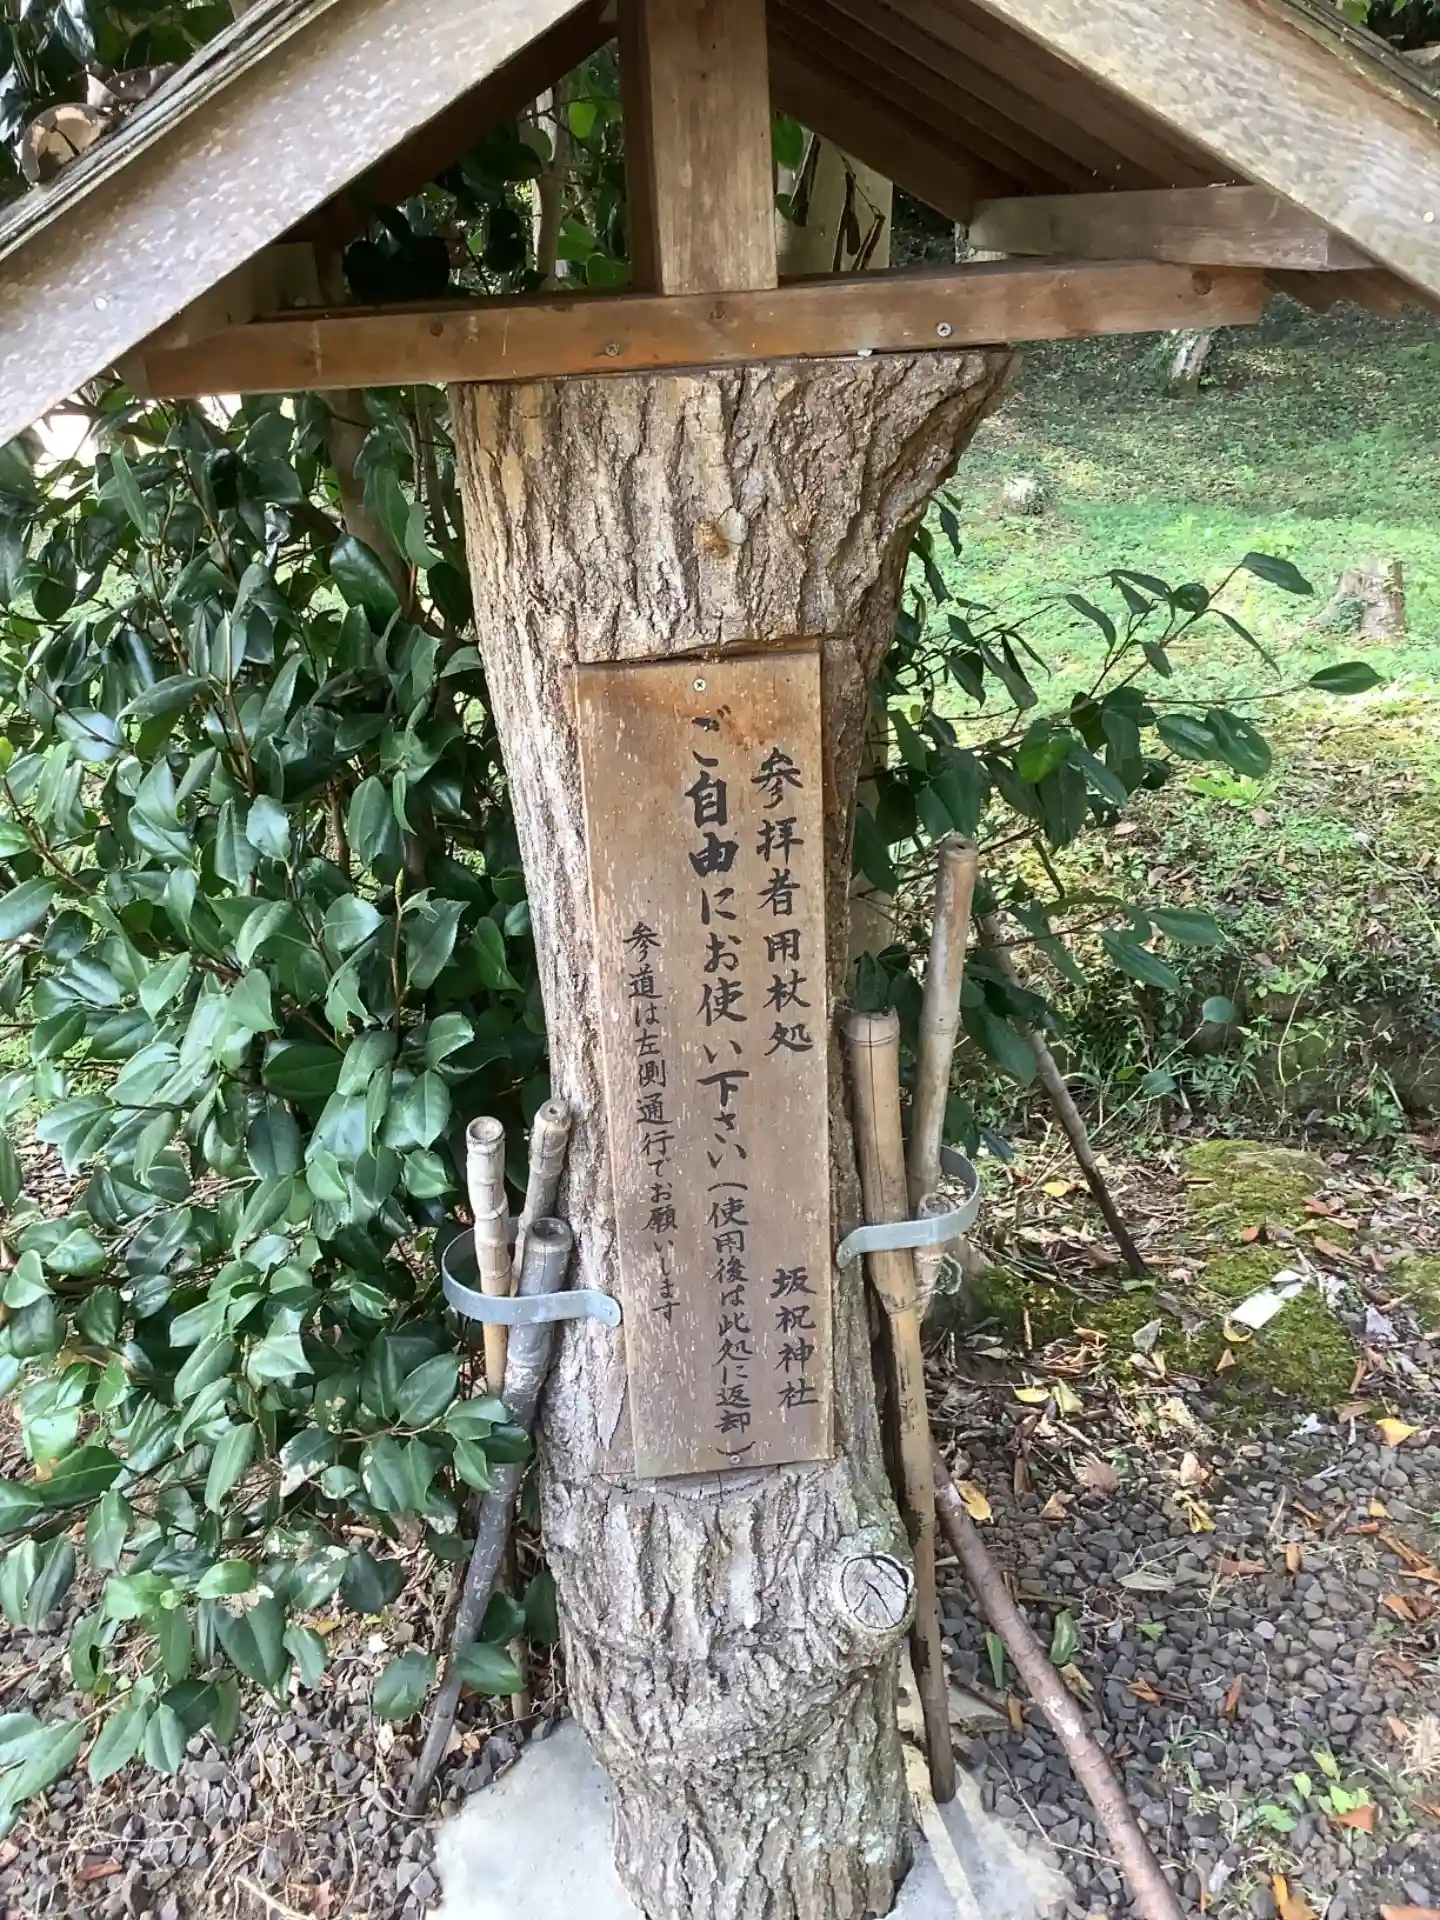 参拝者用杖処
坂祝神社
ご自由にお使い下さい(使用後は此処に返却)
参道は左側通行でお願いします